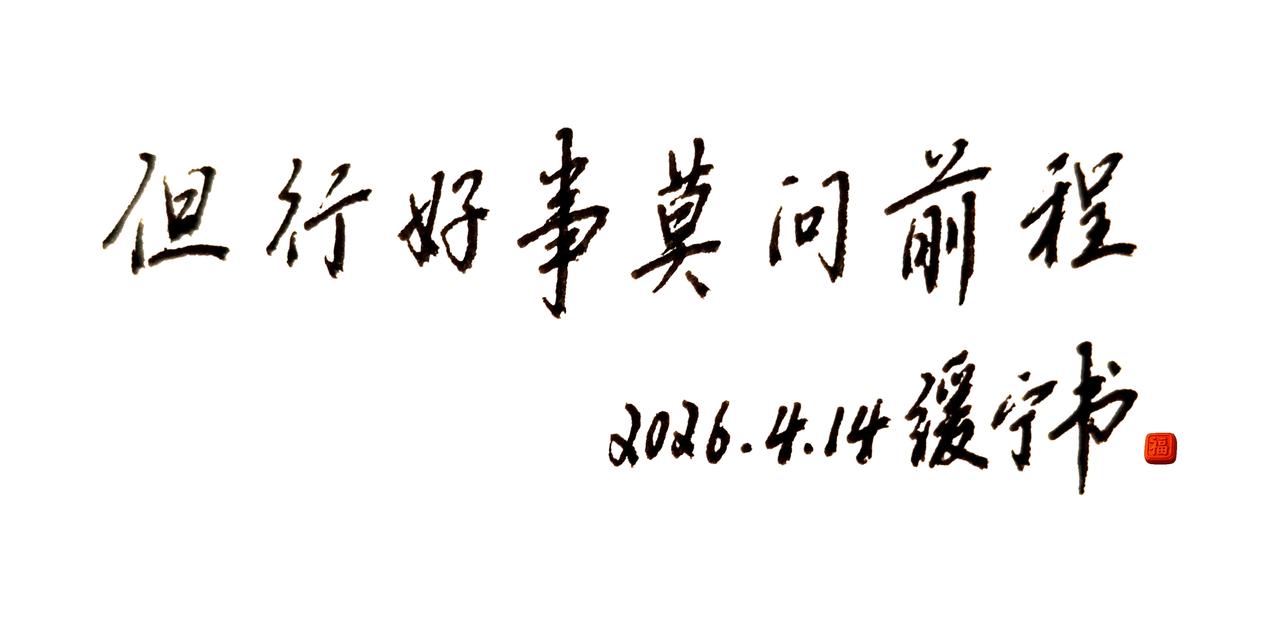 但行好事莫问前程
2026.4.14缓宁书
福